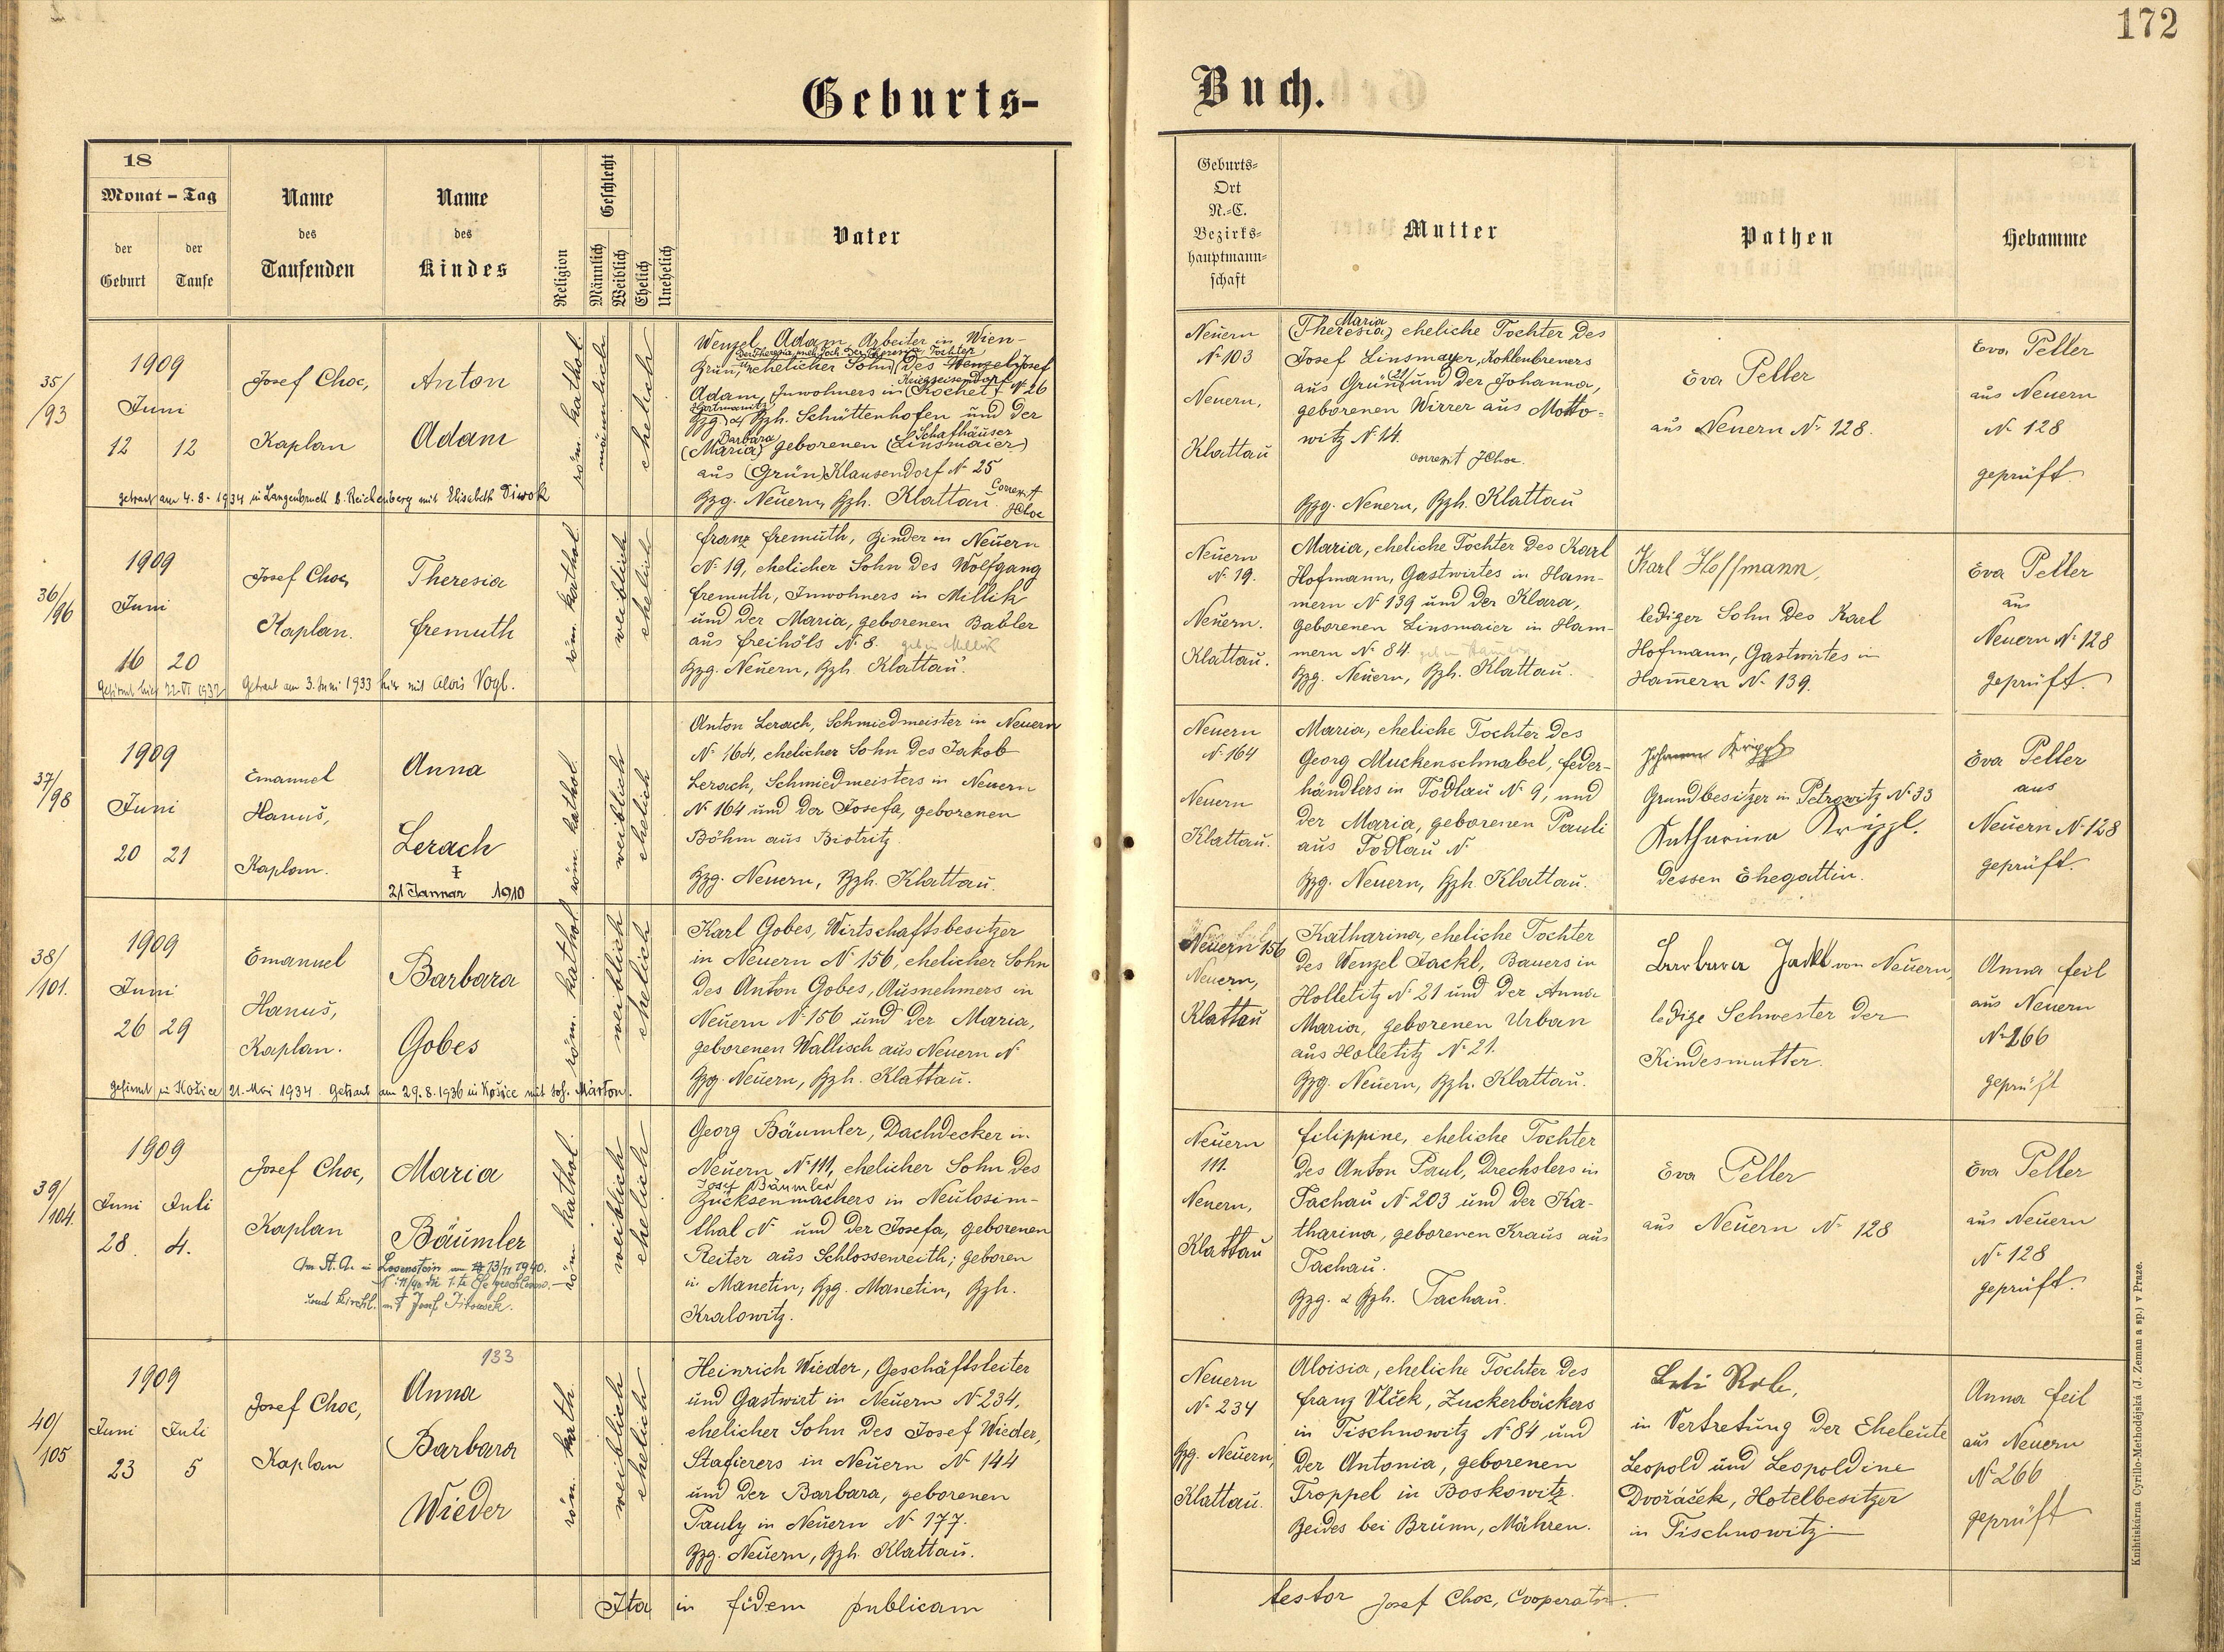 172
Geburts-
Buch.
18
Monat - Tag
der Geburt
der Taufe
Name des Taufenden
Name des Kindes
Religion
Geschlecht
Männlich
Weiblich
Ehelich
Unehelich
Vater
Geburts-
Ort
N.-C.
Bezirks-
hauptmann-
schaft
Mutter
Pathen
Hebamme
35/
/93
1909
Juni
12 12
Josef Choc,
Kaplan
Anton
Adam
röm. kathol.
männlich
ehelich
Wenzel Adam, Arbeiter in Wien-
Grün, ehelicher Sohn des Wenzel Josef
Adam, Inwohners in (Kochet) N. 26
Bzg. & Bzh. Schüttenhofen und der
Barbara Schafhäuser
(Maria) geborenen (Linsmaier)
aus (Grün) Klausendorf N. 25
Bzg. Neuern, Bzh. Klattau. Correxit
JChoc
getraut am 4.8.1934 in Langenbruck b. Reichenberg mit Elisabeth Diwok
Neuern
N. 103
Neuern,
Klattau
Maria
(Theresia) eheliche Tochter des
Josef Linsmayer, Kohlenbreners
aus Grün 21 und der Johanna,
geborenen Wirrer aus Motto-
witz N. 14.
correxit JChoc.
Bzg. Neuern, Bzh. Klattau
Eva Peller
aus Neuern N. 128.
Eva Peller
aus Neuern
N. 128
geprüft.
36/
/96
1909
Juni
16 20
Josef Choc,
Kaplan.
Theresia
Fremuth
röm. kathol.
weiblich
ehelich
Franz Fremuth, Binder in Neuern
N. 19, ehelicher Sohn des Wolfgang
Fremuth, Inwohners in Millik
und der Maria, geborenen Babler
aus Freihöls N. 8. geb. in Millik
Bzg. Neuern, Bzh. Klattau.
Gefirmt hier 22.VI 1932 Getraut am 3. Juni 1933 hier mit Alois Vogl.
Neuern
N. 19.
Neuern.
Klattau.
Maria, eheliche Tochter des Karl
Hofmann, Gastwirtes in Ham-
mern N. 139 und der Klara,
geborenen Linsmaier in Ham-
mern N. 84.
Bzg. Neuern, Bzh. Klattau.
Karl Hoffmann,
lediger Sohn des Karl
Hofmann, Gastwirtes in
Ham̅ern N. 139.
Eva Peller
aus
Neuern N. 128
geprüft.
37/
/98
1909
Juni
20 21
Emanuel
Hanuš,
Kaplan.
Anna
Lerach
‡
21 Jannar 1910
röm. kathol.
weiblich
ehelich
Anton Lerach, Schmiedmeister in Neuern
N. 164, ehelicher Sohn des Jakob
Lerach, Schmiedmeisters in Neuern
N. 164 und der Josefa, geborenen
Böhm aus Bistritz.
Bzg. Neuern, Bzh. Klattau.
Neuern
N. 164
Neuern
Klattau.
Maria, eheliche Tochter des
Georg Muckenschnabel, Feder-
händlers in Todlau N. 9, und
der Maria, geborenen Pauli
aus Todlau N.
Bzg. Neuern, Bzh. Klattau.
Johann Krippl
Grundbesitzer in Petrowitz N. 33
Katharina Krippl.
dessen Ehegattin.
Eva Peller
aus
Neuern N. 128
geprüft.
38/
/101.
1909
Juni
26 29
Emanuel
Hanuš,
Kaplan.
Barbara
Gobes
röm. kathol.
weiblich
ehelich
Karl Gobes, Wirtschaftsbesitzer
in Neuern N. 156, ehelicher Sohn
des Anton Gobes, Ausnehmers in
Neuern N. 156 und der Maria,
geborenen Wallisch aus Neuern N.
Bzg. Neuern, Bzh. Klattau.
gefirmt in Košice 21. Mai 1934 Getraut am 29.8.1936 in Košice mit Joh. Márton.
Neuern 156
Neuern,
Klattau
Katharina, eheliche Tochter
des Wenzel Jackl, Bauers in
Holletitz N. 21 und der Anna
Maria, geborenen Urban
aus Holletitz N. 21.
Bzg. Neuern, Bzh. Klattau.
Barbara Jackl von Neuern,
ledige Schwester der
Kindesmutter.
Anna Feil
aus Neuern
N. 266
geprüft
39/
/104.
1909
Juni Juli
28. 4.
Josef Choc,
Kaplan
Maria
Bäumler
röm. kathol.
weiblich
ehelich
Georg Bäumler, Dachdecker in
Neuern N. 111, ehelicher Sohn des
Josef Bäumler
Bücksenmachers in Neulosim-
thal N. und der Josefa, geborenen
Reiter aus Schlossenreith; geboren
in Manetin; Bzg. Manetin, Bzh.
Kralowitz.
Neuern
111.
Neuern,
Klattau
Filippine, eheliche Tochter
des Anton Paul, Drechslers in
Tachau N. 203 und der Ka-
tharina, geborenen Kraus aus
Tachau.
Bzg. & Bzh. Tachau.
Eva Peller
aus Neuern N. 128
Eva Peller
aus Neuern
N. 128
geprüft.
40/
/105
1909
Juni Juli
23 5
Josef Choc,
Kaplan
133
Anna
Barbara
Wieder
röm. kath.
weiblich
ehelich
Heinrich Wieder, Geschäftsleiter
und Gastwirt in Neuern N. 234,
ehelicher Sohn des Josef Wieder,
Stafierers in Neuern N. 144
und der Barbara, geborenen
Pauly in Neuern N. 177.
Bzg. Neuern, Bzh. Klattau.
Neuern
N. 234
Bzg. Neuern,
Klattau.
Aloisia, eheliche Tochter des
Franz Vlček, Zuckerbäckers
in Tischnowitz N. 84 und
der Antonia, geborenen
Troppel in Boskowitz.
Beides bei Brünn, Mähren.
in Vertretung der Eheleute
Leopold und Leopoldine
Dvořáček, Hotelbesitzer
in Tischnowitz.
Anna Feil
aus Neuern
N. 266
geprüft
Ita in fidem publicam
testor Josef Choc, Cooperator.
Knihtiskárna Cyrillo-Methodějská (J. Zeman a sp.) v Praze.